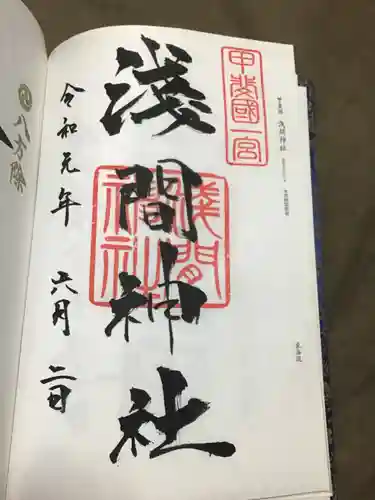 甲斐國一宮
淺間神社
淺間神社
令和元年
六月
二日
東海道